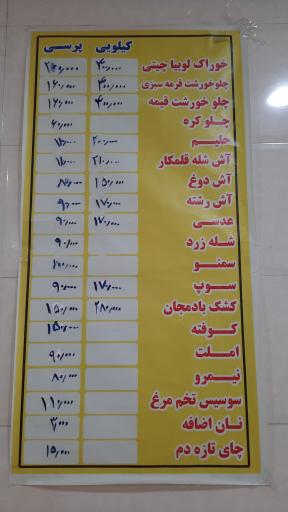 کیلویی پرسی
خوراک لوبیا چیتی ۴۰۰,۰۰۰
چلوخورشت قرمه سبزی ۴۰۰,۰۰۰ ۱۶۰,۰۰۰
چلو خورشت قیمه ۴۰۰,۰۰۰ ۱۶۰,۰۰۰
چلو کره ۶۰,۰۰۰
حلیم ۲۰۰,۰۰۰
آش شله قلمکار ۲۱۰,۰۰۰
آش دوغ ۱۵۰,۰۰۰ ۸۰,۰۰۰
آش رشته ۱۷۰,۰۰۰ ۹۰,۰۰۰
عدسی ۱۷۰,۰۰۰ ۹۰,۰۰۰
شله زرد ۹۰,۰۰۰
سمنو
سوپ ۱۷۰,۰۰۰ ۹۰,۰۰۰
کشک بادمجان ۲۸۰,۰۰۰ ۱۵۰,۰۰۰
کوفته ۱۵۰,۰۰۰
املت ۹۰,۰۰۰
نیمرو ۸۰,۰۰۰
سوسیس تخم مرغ ۱۱۰,۰۰۰
نان اضافه ۳,۰۰۰
چای تازه دم ۱۵,۰۰۰